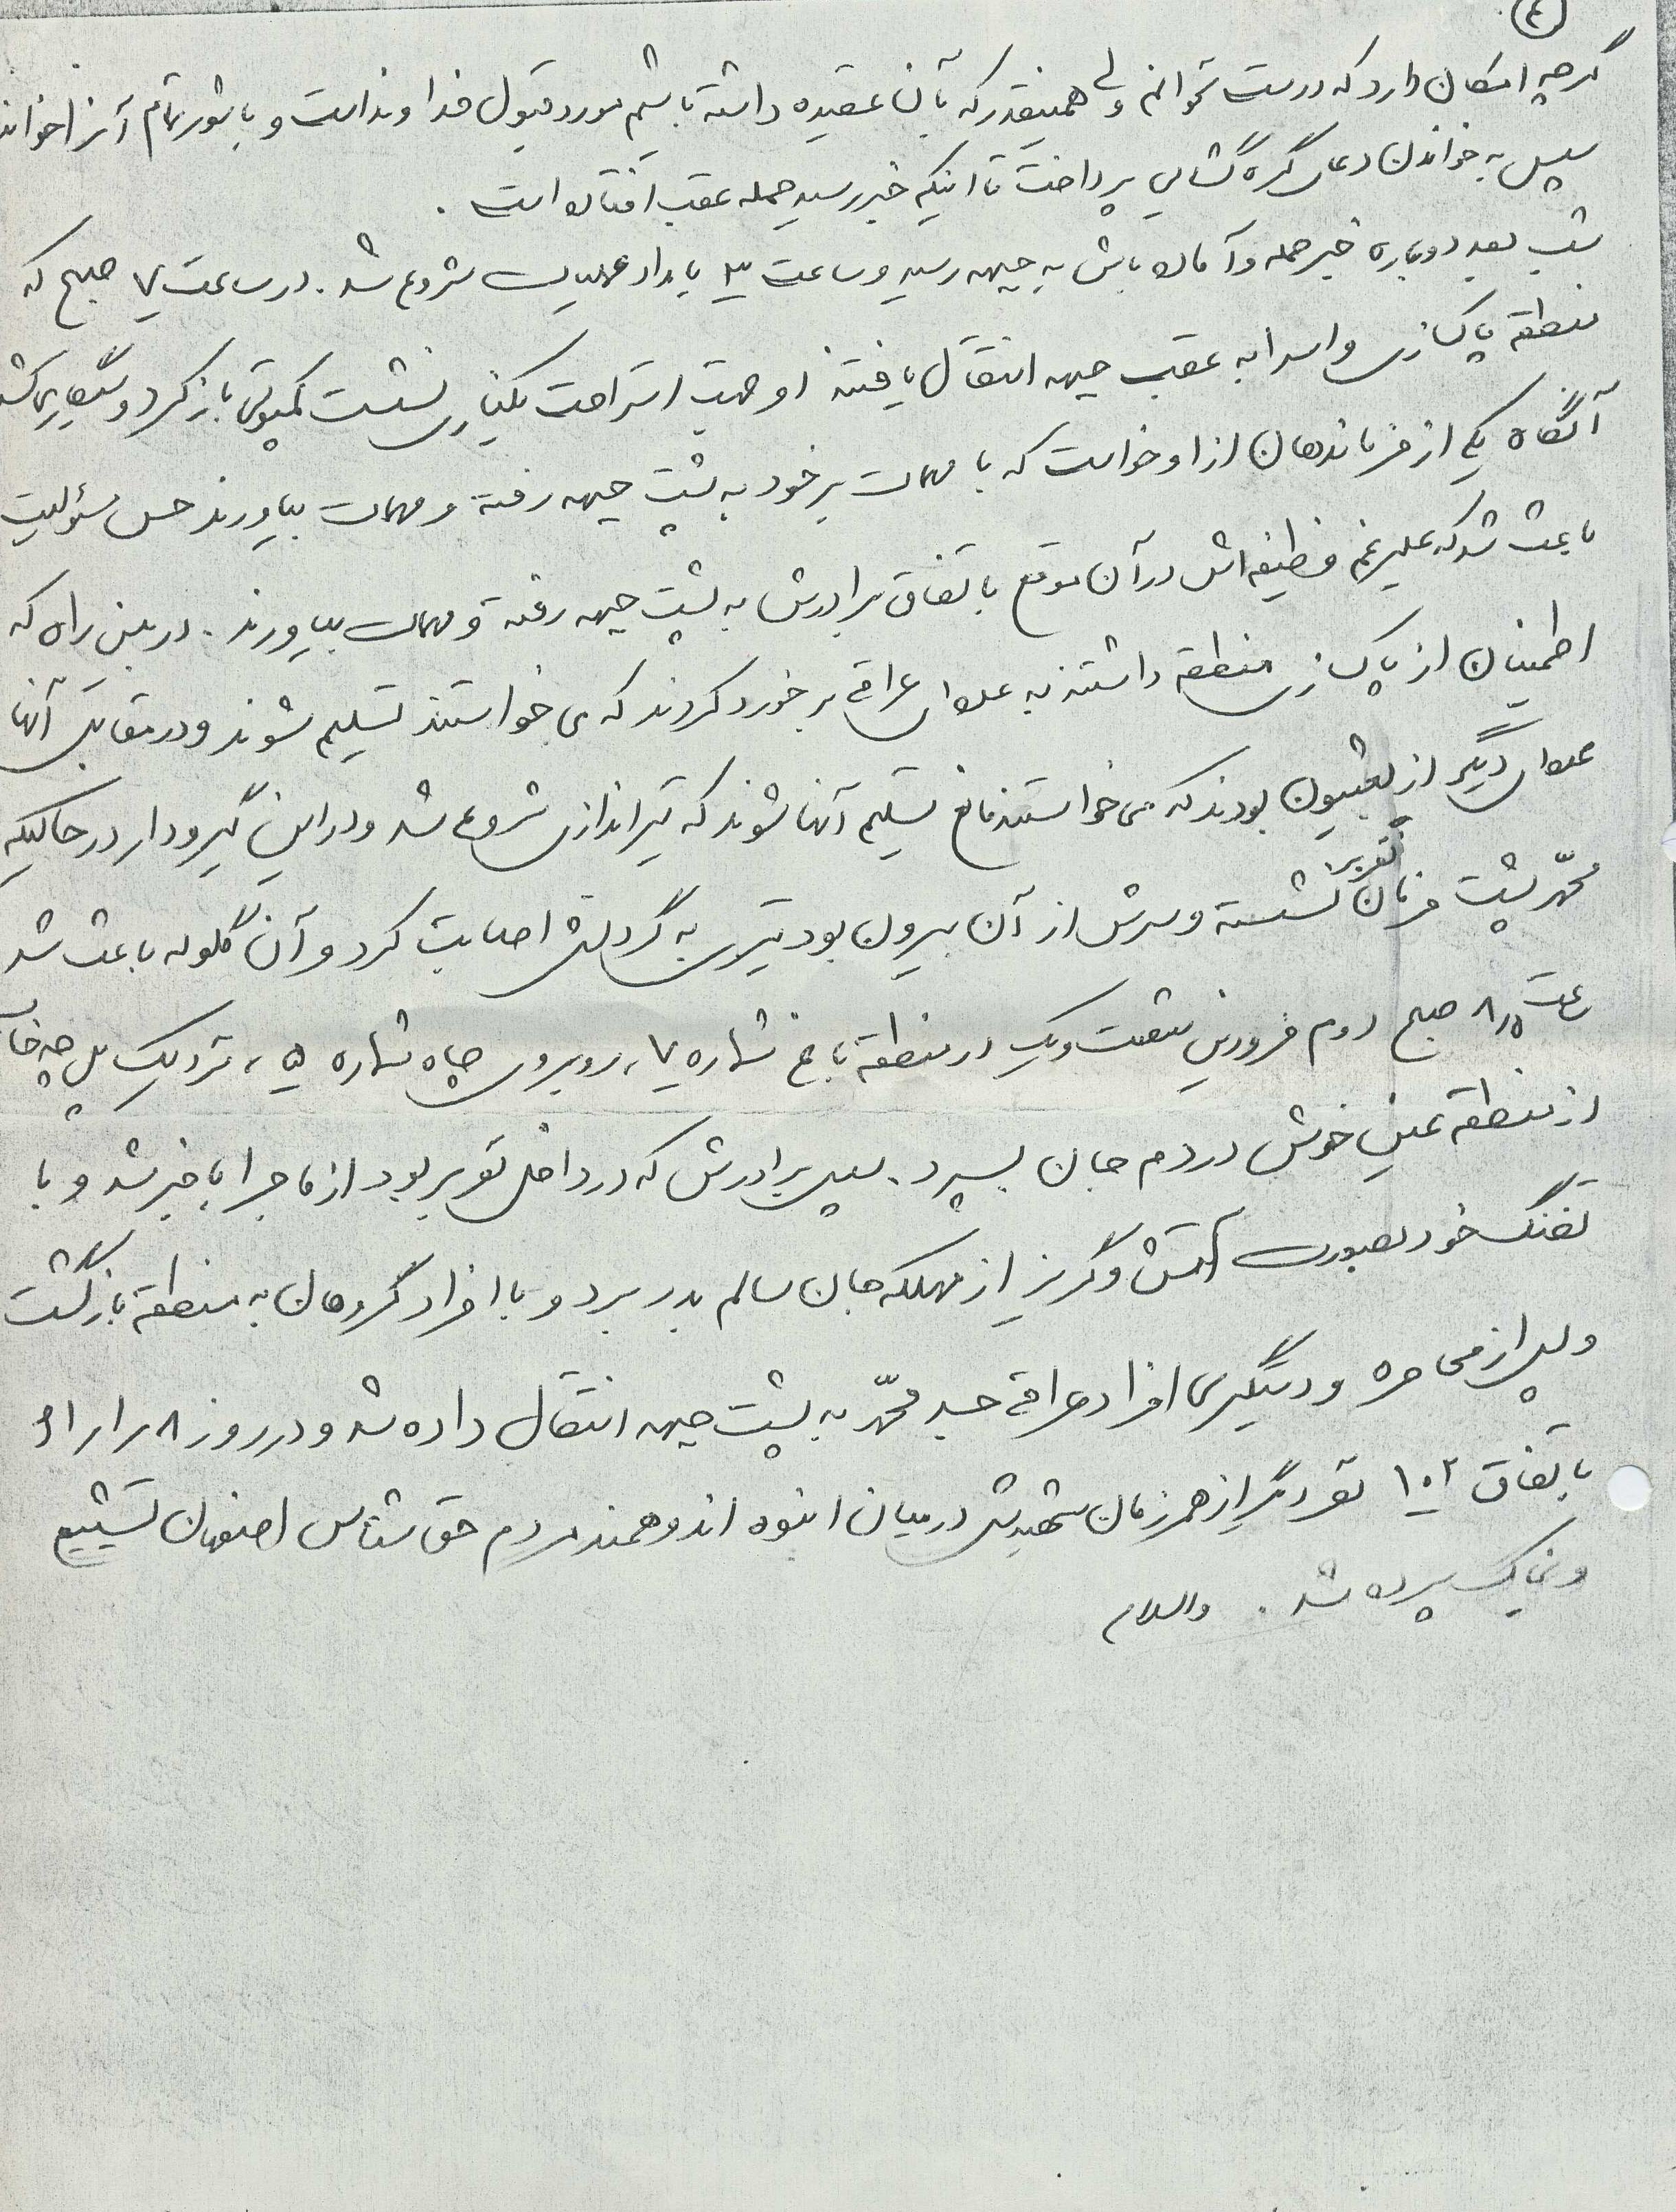 ۴
گرچه امکان دارد که درست نخوانم ولی همینقدر که بآن عقیده داشته باشم مورد قبول خداوند است و با شور تمام آنرا خواند
سپس به خواندن دعای گره گشایی پرداخت تا اینکه خبر رسید حمله عقب افتاده است .
شب بعد دوباره خبر حمله و آماده باش به جبهه رسید و ساعت ۳ بامداد عملیات شروع شد . در ساعت ۷ صبح که
منطقه پاکسازی و اسرا به عقب جبهه انتقال یافتند او جهت استراحت بکناری نشست کمپوتی باز کرد و سیگاری کشید
آنگاه یکی از فرماندهان از او خواست که با مهمات بر خود به پشت جبهه رفته و مهمات بیاورند حس مسئولیت
باعث شد که علیرغم وظیفه اش در آن موقع باتفاق برادرش به پشت جبهه رفته و مهمات بیاورند . در بین راه که
اطمینان از پاکسازی منطقه داشتند به عده ای عراقی برخورد کردند که می خواستند تسلیم شوند و در مقابل آنها
عده ای دیگر از بعثیون بودند که می خواستند مانع تسلیم آنها شوند که تیراندازی شروع شد و در این گیرودار در حالیکه
محمد پشت فرمان نفربر نشسته و سرش از آن بیرون بود تیری به گردنش اصابت کرد و آن گلوله باعث شد
ساعت ۸/۵ صبح دوم فروردین شصت و یک در منطقه باغ شماره ۷ ، روبروی چاه شماره ۵ ، نزدیک پل چم خانه
از منطقه عین خوش در دم جان بسپرد . سپس برادرش که در داخل نفربر بود از ماجرا با خبر شد و با
تفنگ خود بصورت آتش و گریز از مهلکه جان سالم بدر برد و با افراد گروهان به منطقه بازگشت
و پس از محاصره و دستگیری افراد عراقی جسد محمد به پشت جبهه انتقال داده شد و در روز ۸ ر ۱ ر ۶۱
باتفاق ۱۰۲ نفر دیگر از همرزمان شهیدش در میان انبوه اندوهمند مردم حق شناس اصفهان تشییع
و بخاک سپرده شد . والسلام